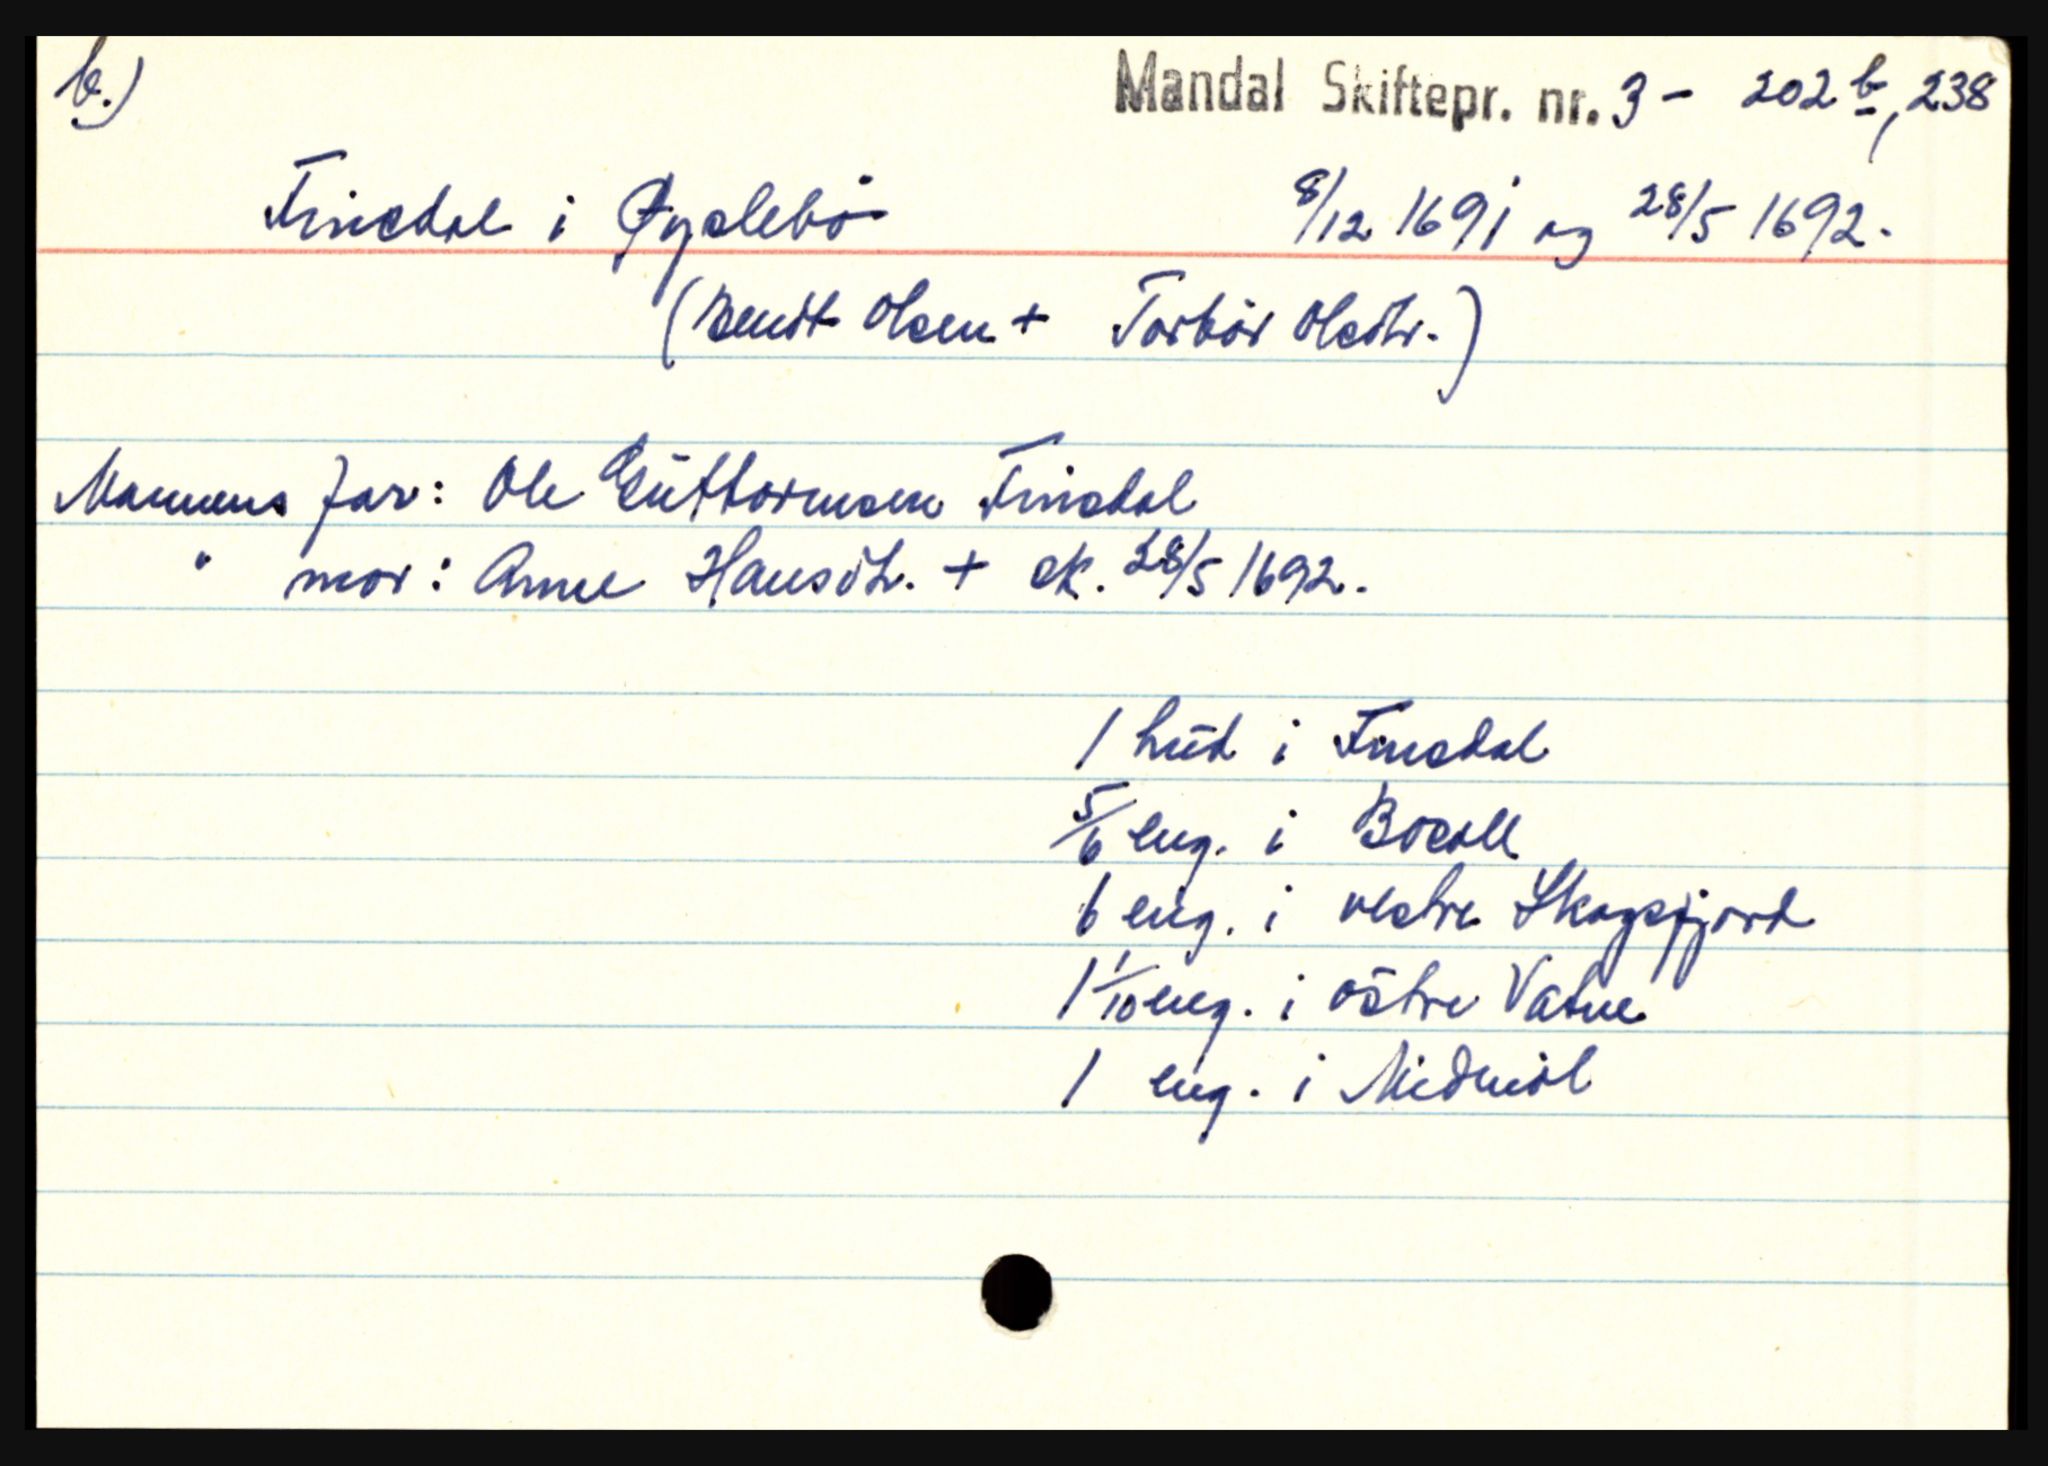 b.) Mandal Skiftepr. nr. 3 - 202 b, 238
Finsdal i Øyslebö 8/12 1691 og 28/5 1692.
(Bendt Olsen + Torbör Olsdtr.)
Mannens far: Ole Guttormsen Finsdal
" mor: Anne Hansdtr. + sk. 28/5 1692.
1 hud i Finsdal
5/6 eng. i
6 eng. i vestre Skogsfjord
1 1/10 eng. i östre Vatne
1 eng. i Midmöl